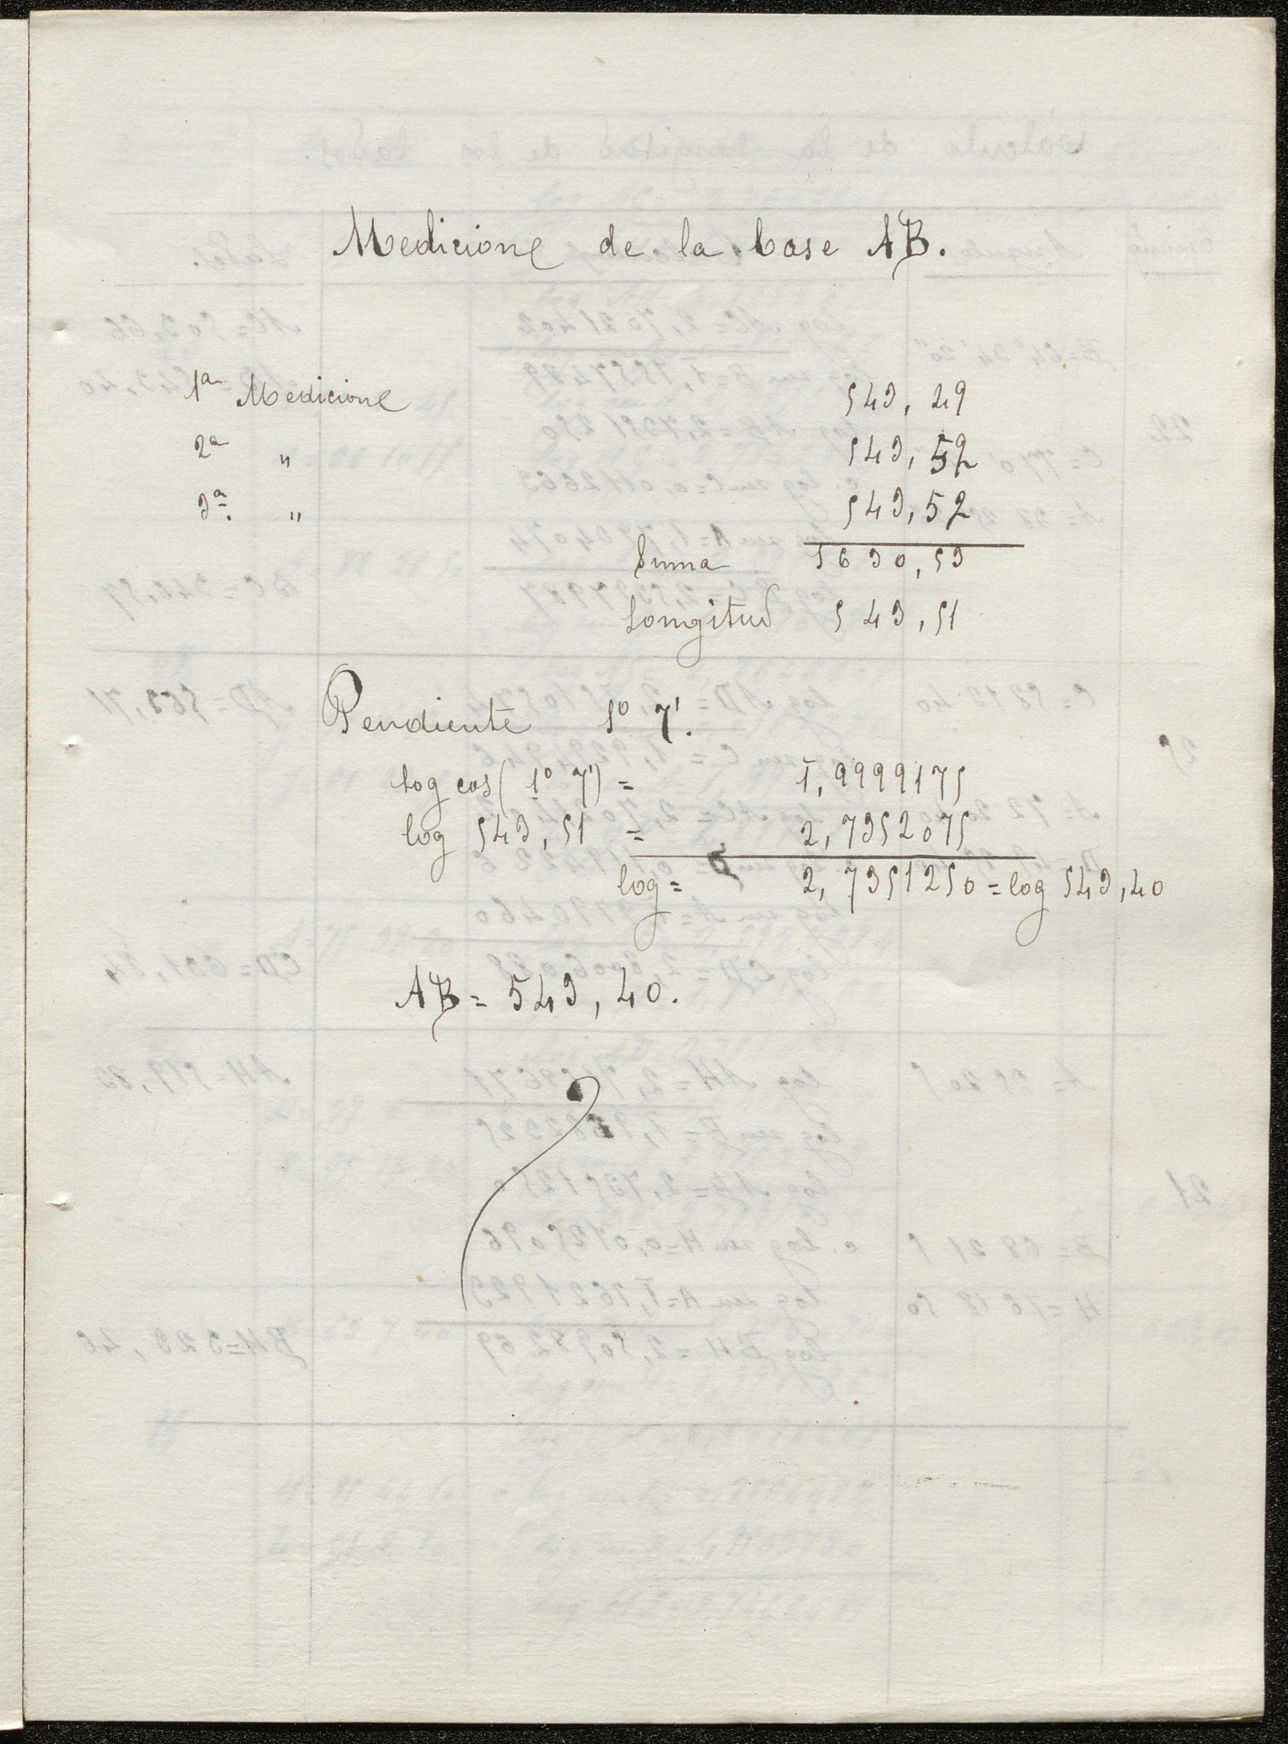 Medicione de la base AB.
1ª Medicione 543,49
2ª " 543,52
3ª. " 543,52
Suma 1630,53
Longitud 543,51
Pendiente 1º 7'.
log cos (1º 7') = 1̄,9999175
log 543,51 = 2,7352075
log = 2,7351250 = log 543,40
AB = 543,40.